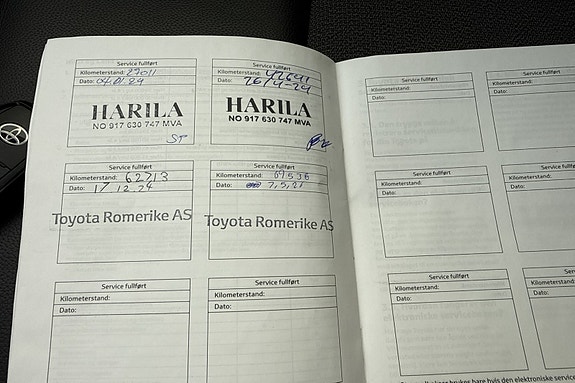 Service fullført
Kilometerstand: 27011
Dato: 04.01.24
HARILA
NO 917 630 747 MVA
ST
Service fullført
Kilometerstand: 42641
Dato: 26/4-24
HARILA
NO 917 630 747 MVA
Service fullført
Kilometerstand: 62713
Dato: 17 12 24
Toyota Romerike AS
Service fullført
Kilometerstand: 69536
Dato:
Toyota Romerike AS
Service fullført
Kilometerstand:
Dato:
Service fullført
Kilometerstand:
Dato:
Service fullført
Kilometerstand:
Dato:
Service
Kilometerstand:
Dato:
Service fullført
Kilometerstand:
Dato:
Service
Kilometerstand:
Dato:
Service fullført
Kilometerstand:
Dato:
Service
Kilometerstand:
Dato:
bruker bare hvis den elektroniske service